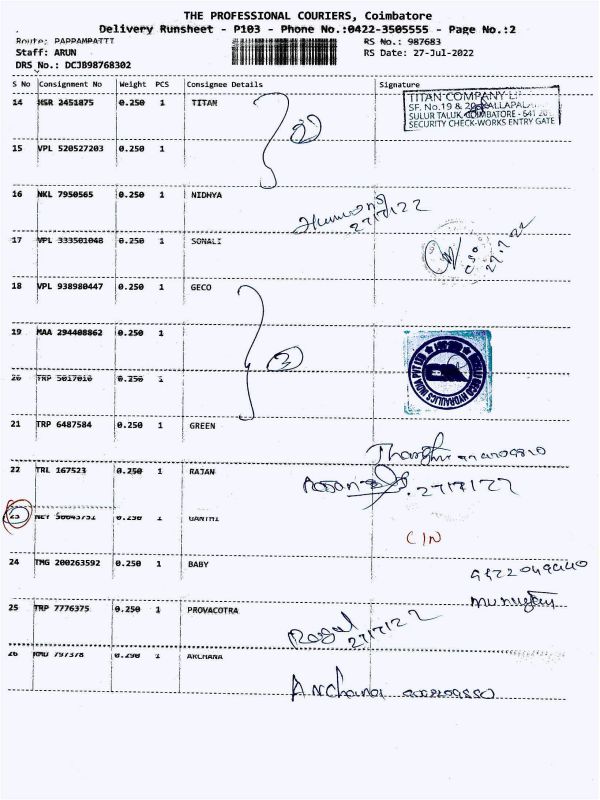 THE PROFESSIONAL COURIERS, Coimbatore
Delivery Runsheet - P103 - Phone No.:0422-3505555 - Page No.:2
Route: PAPPAMPATTI
RS No.: 987683
Staff: ARUN
RS Date: 27-Jul-2022
DRS No.: DCJB98768302
S No Consignment No Weight PCS Consignee Details Signature
14 HSR 2451875 0.250 1 TITAN
TITAN COMPANY
SF. No.19 & 20
SULUR TALUK, COIMBATORE - 641
SECURITY CHECK-WORKS ENTRY GATE
2
15 VPL 520527203 0.250 1
16 NKL 7950565 0.250 1 NIDHYA
27/7/22
17 VPL 333501048 0.250 1 SONALI
27.7.22
18 VPL 938980447 0.250 1 GECO
19 MAA 294408862 0.250 1
3
20 TRP 5017010 0.250 1
21 TRP 6487584 0.250 1 GREEN
22 TRL 167523 0.250 1 RAJAN
27/7/22
23 0.250 1 GANTHI
CIN
24 TMG 200263592 0.250 1 BABY
Murugan
25 TRP 7776375 0.250 1 PROVACOTRA
27/7/22
26 KMU 797378 0.250 1 ARCHANA
Archana